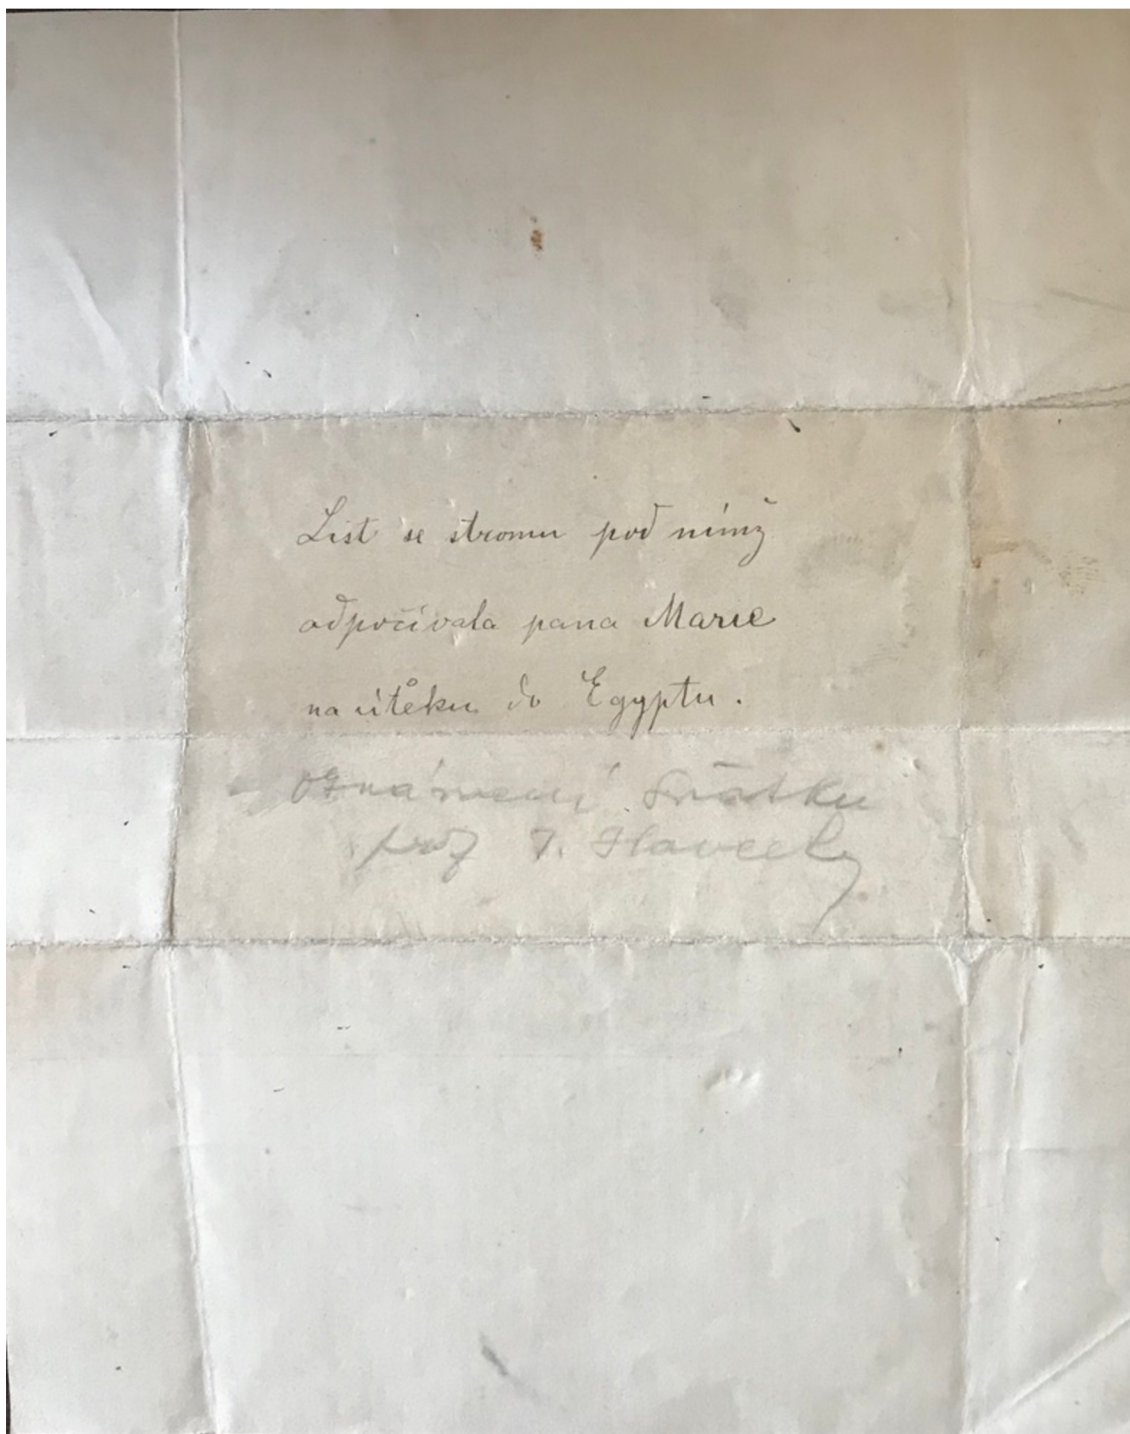 List se stromu pod nímž
odpočívala pana Marie
na útěku do Egyptu.
Oznámení sňatku
prof J.